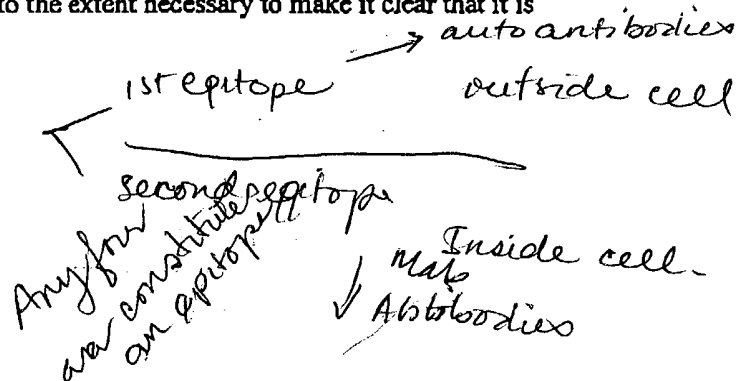 to the extent necessary to make it clear that it is
autoantibodies
1st epitope
outside cell
second epitope
Any four
constitute
an epitope
Inside cell.